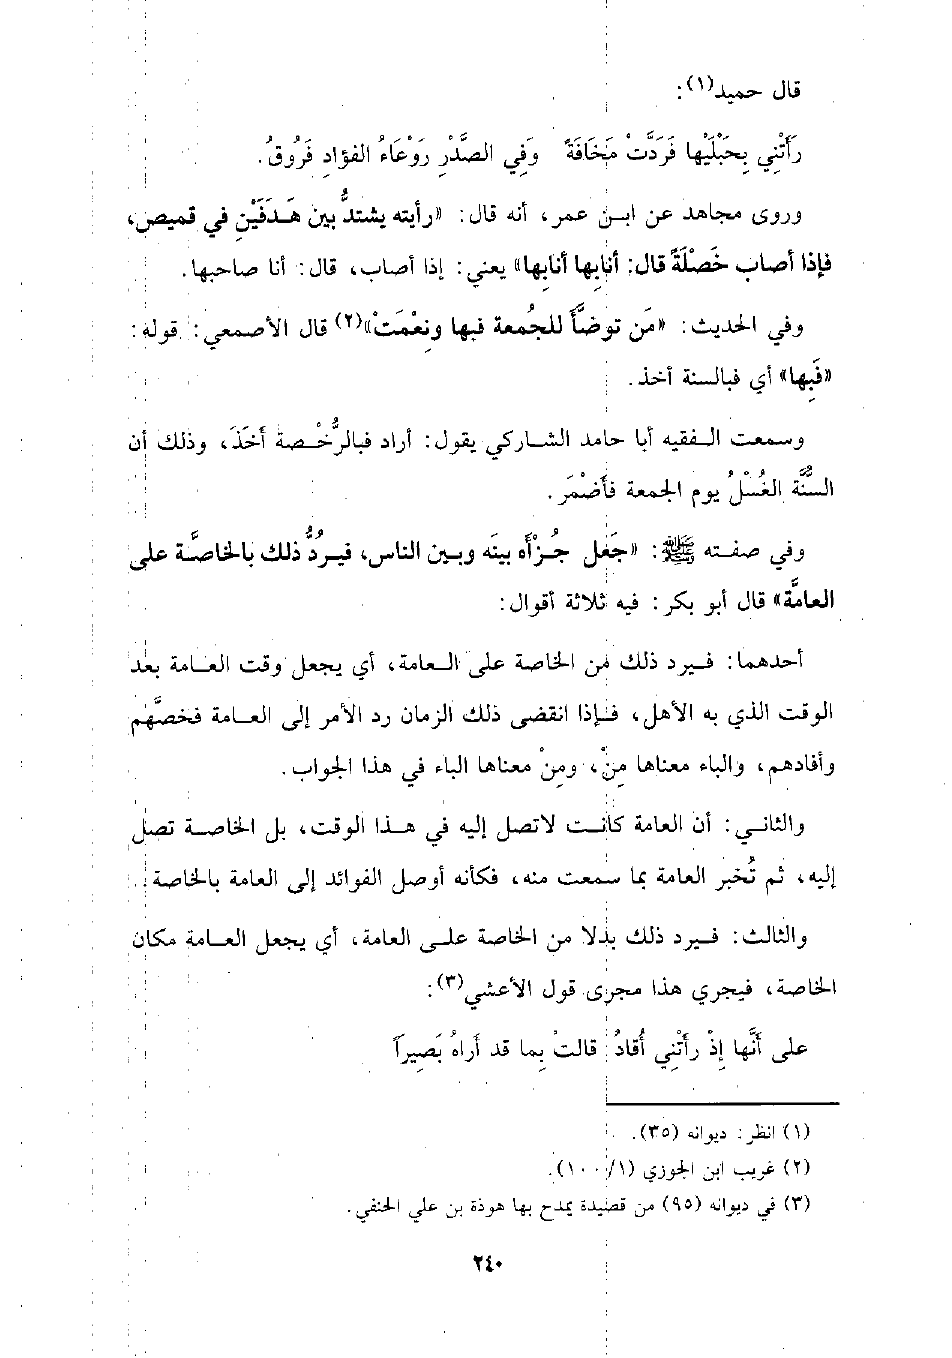 قال حميد(١):
رَأَتْنِي بِحَبْلَيْها فَرَدَّتْ مَخَافَةً وَفِي الصَّدْرِ رَوْعَاءُ الفؤادِ فَرُوقُ.
وروى مجاهد عن ابن عمر، أنه قال: «رأيته يشتدُّ بين هَدَفَيْنِ في قميص،
فإذا أصاب خَصْلَةً قال: أنابِها أنابِها» يعني: إذا أصاب، قال: أنا صاحبها.
وفي الحديث: «مَن توضَّأ للجُمعة فبها ونِعْمَتْ»(٢) قال الأصمعي: قوله:
«فَبِها» أي فبالسنة أخذ.
وسمعت الفقيه أبا حامد الشاركي يقول: أراد فبالرُّخْصة أَخَذَ، وذلك أن
السُّنَّة الغُسْلُ يوم الجمعة فأَضْمَر.
وفي صفته ﷺ: «جَعَل جُزْأه بينَه وبين الناس، فيرُدُّ ذلك بالخاصَّة على
العامَّة» قال أبو بكر: فيه ثلاثة أقوال:
أحدهما: فيرد ذلك من الخاصة على العامة، أي يجعل وقت العامة بعد
الوقت الذي به الأهل، فإذا انقضى ذلك الزمان رد الأمر إلى العامة فخصَّهم
وأفادهم، والباء معناها مِنْ، ومِنْ معناها الباء في هذا الجواب.
والثاني: أن العامة كانت لاتصل إليه في هذا الوقت، بل الخاصة تصل
إليه، ثم تُخبر العامة بما سمعت منه، فكأنه أوصل الفوائد إلى العامة بالخاصة.
والثالث: فيرد ذلك بدلا من الخاصة على العامة، أي يجعل العامة مكان
الخاصة، فيجري هذا مجرى قول الأعشي(٣):
على أَنَّها إذْ رأَتْنِي أُقادُ قالتْ بِما قد أَراهُ بَصِيراً
(١) انظر: ديوانه (٣٥).
(٢) غريب ابن الجوزي (١/ ١٠٠).
(٣) في ديوانه (٩٥) من قصيدة يمدح بها هوذة بن علي الحنفي.
٢٤٠